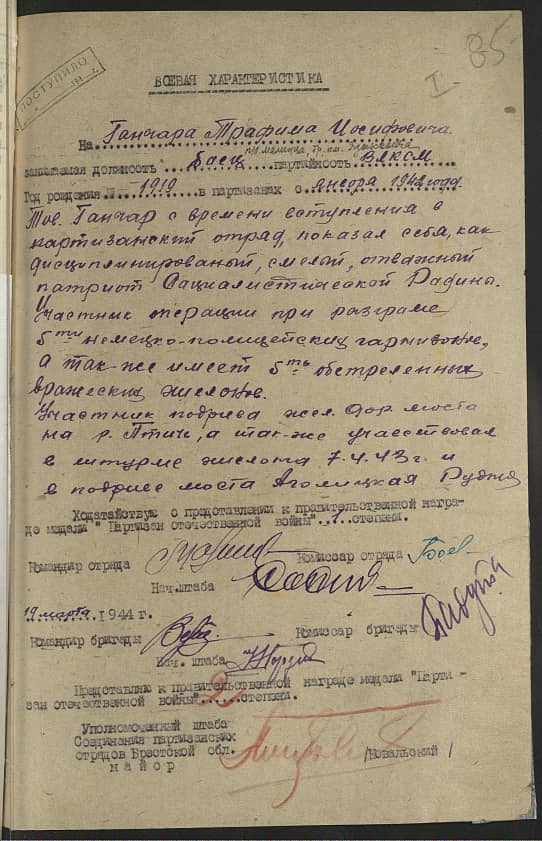 85
I
ПОСТУПИЛО
194 г.
БОЕВАЯ ХАРАКТЕРИСТИКА
На Ганчара Трафима Иосифовича
занимаемая должность боец партийность ВЛКСМ
Год рождения 1919 в партизанах с января 1942 года
Тов. Ганчар с времени вступления в
партизанский отрад, показал себя, как
дисциплинированый, смелый, отважный
патриот Социалистической Радины.
Участник операции при разграме
5ти немецко-полицейских гарнизонов,
а так-же имеет 5ть обстрелянных
вражеских эшелонов.
Участник подрыва жел. дор. моста
на р. Птич, а так-же участвовал
в штурме эшелона 7.4.43 г. и
в подрыве моста Рудня
Ходатайствую о представлении к правительственной награ-
де медали "Партизан отечественной войны" 1 степени.
Командир отряда
Комиссар отряда
Нач. штаба
19 марта 1944 г.
Командир бригады
Комиссар бригады
Нач. штаба
Представляю к правительственной награде медали "Парти-
зан отечественной войны" 2 степени.
Уполномоченный штаба
Соединения партизанских
отрядов Брестской обл.
майор /Ковальский/